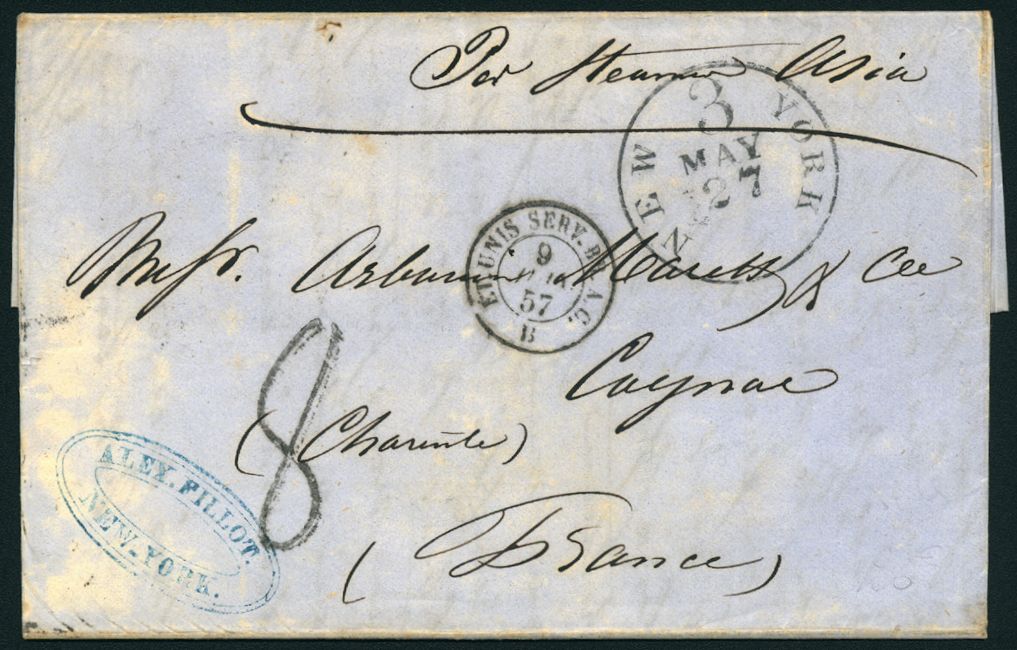 Per Steamer Asia
NEW YORK
3
MAY
27
ET. UNIS SERV. BR. A.C.
9
JUIN
57
B
Messr. Marett & Cie
Cognac
8
(Charente)
(France)
ALEX. PILLOT.
NEW-YORK.